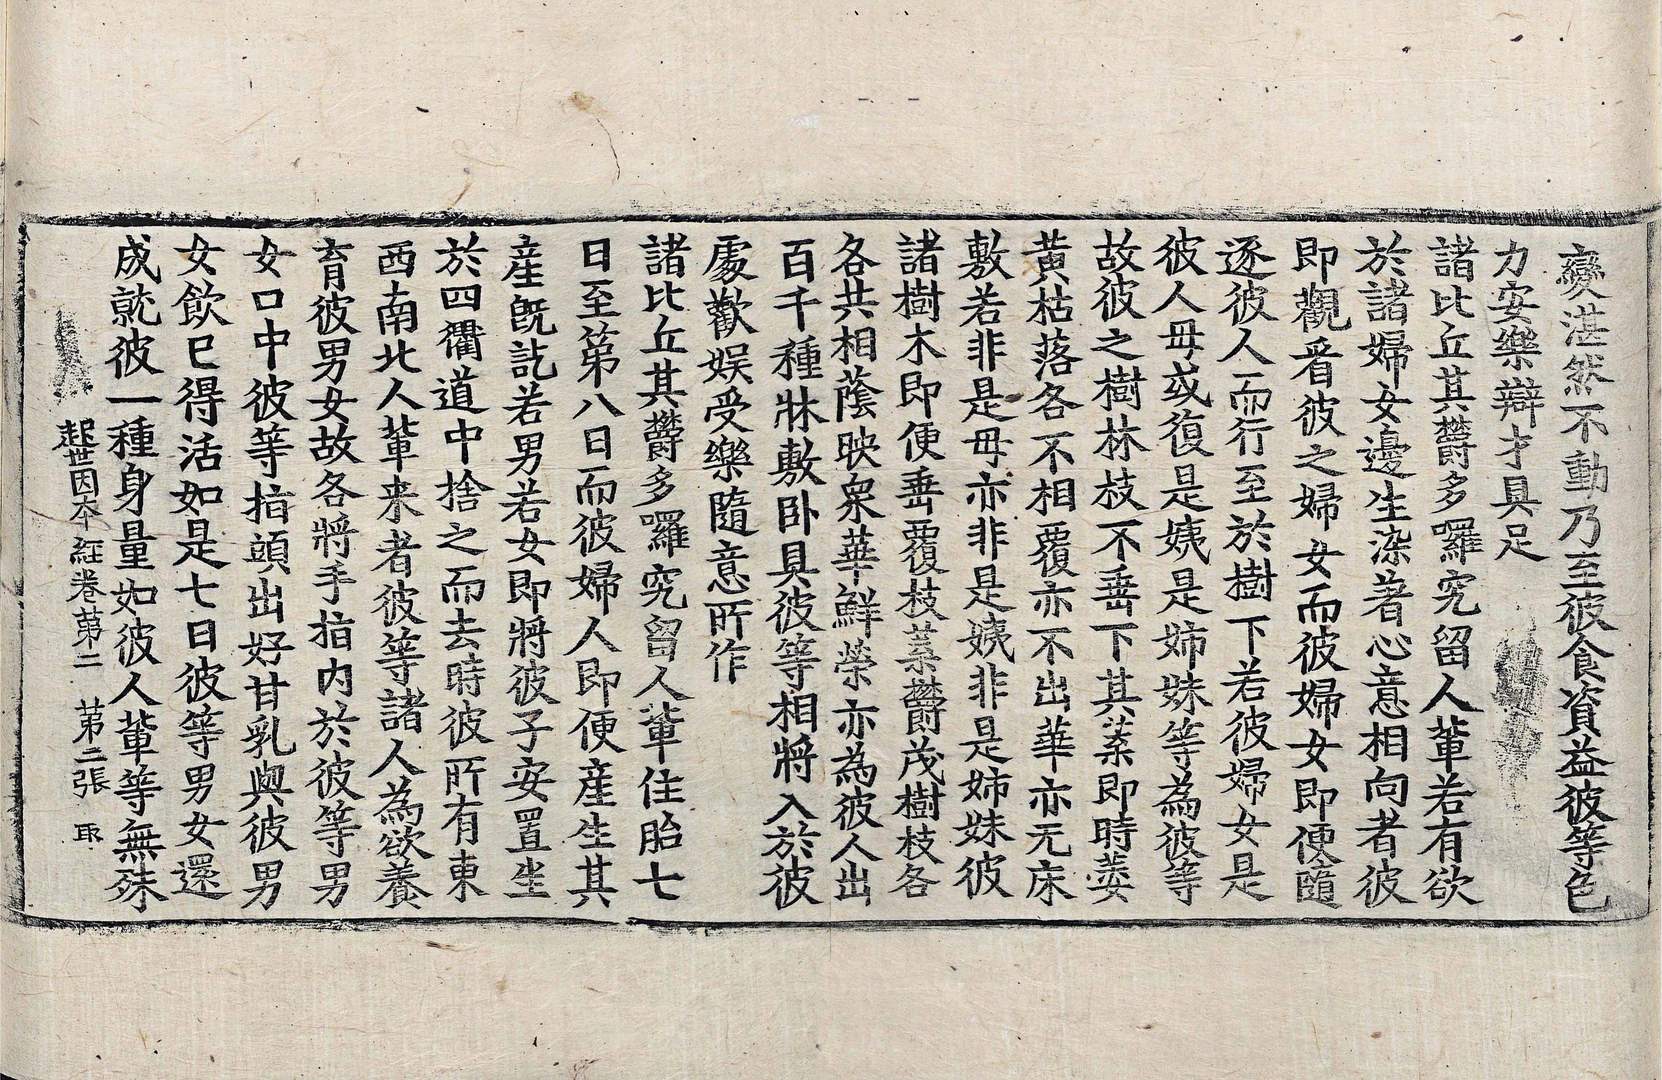 變湛然不動乃至彼食資益彼等色
力安樂辯才具足
諸比丘其欝多囉究留人輩若有欲
於諸婦女邊生染著心意相向者彼
即觀看彼之婦女而彼婦女即便隨
逐彼人而行至於樹下若彼婦女是
彼人母或復是姨是姉妹等為彼等
故彼之樹林枝不垂下其葉即時萎
黃枯落各不相覆亦不出華亦无床
敷若非是母亦非是姨非是姉妹彼
諸樹木即便垂覆枝葉欝茂樹枝各
各共相蔭映衆華鮮榮亦為彼人出
百千種牀敷卧具彼等相將入於彼
處歡娱受樂隨意所作
諸比丘其欝多囉究留人輩住胎七
日至第八日而彼婦人即便產生其
產旣訖若男若女即將彼子安置坐
於四衢道中捨之而去時彼所有東
西南北人輩来者彼等諸人為欲養
育彼男女故各將手指内於彼等男
女口中彼等指頭出好甘乳與彼男
女飲已得活如是七日彼等男女還
成就彼一種身量如彼人輩等無殊
起世因本經卷第二　第二張　取